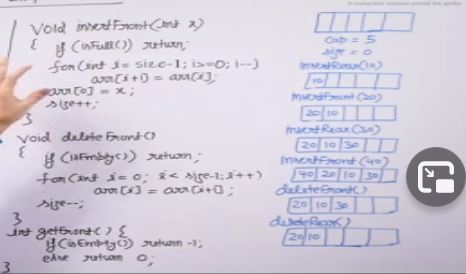 void insertFront(int x)
{ if (isFull()) return;
for(int i = size-1; i>=0; i--)
arr[i+1] = arr[i];
arr[0] = x;
size++;
}
void deleteFront()
{
if (isEmpty()) return;
for(int i=0; i< size-1; i++)
arr[i] = arr[i+1];
size--;
}
int getFront() {
if(isEmpty()) return -1;
else return 0;
}
cap = 5
size = 0
insertRear(10)
10
insertFront(20)
20 10
insertRear(30)
20 10 30
insertFront(40)
40 20 10 30
deleteFront()
20 10 30
deleteRear()
20 10